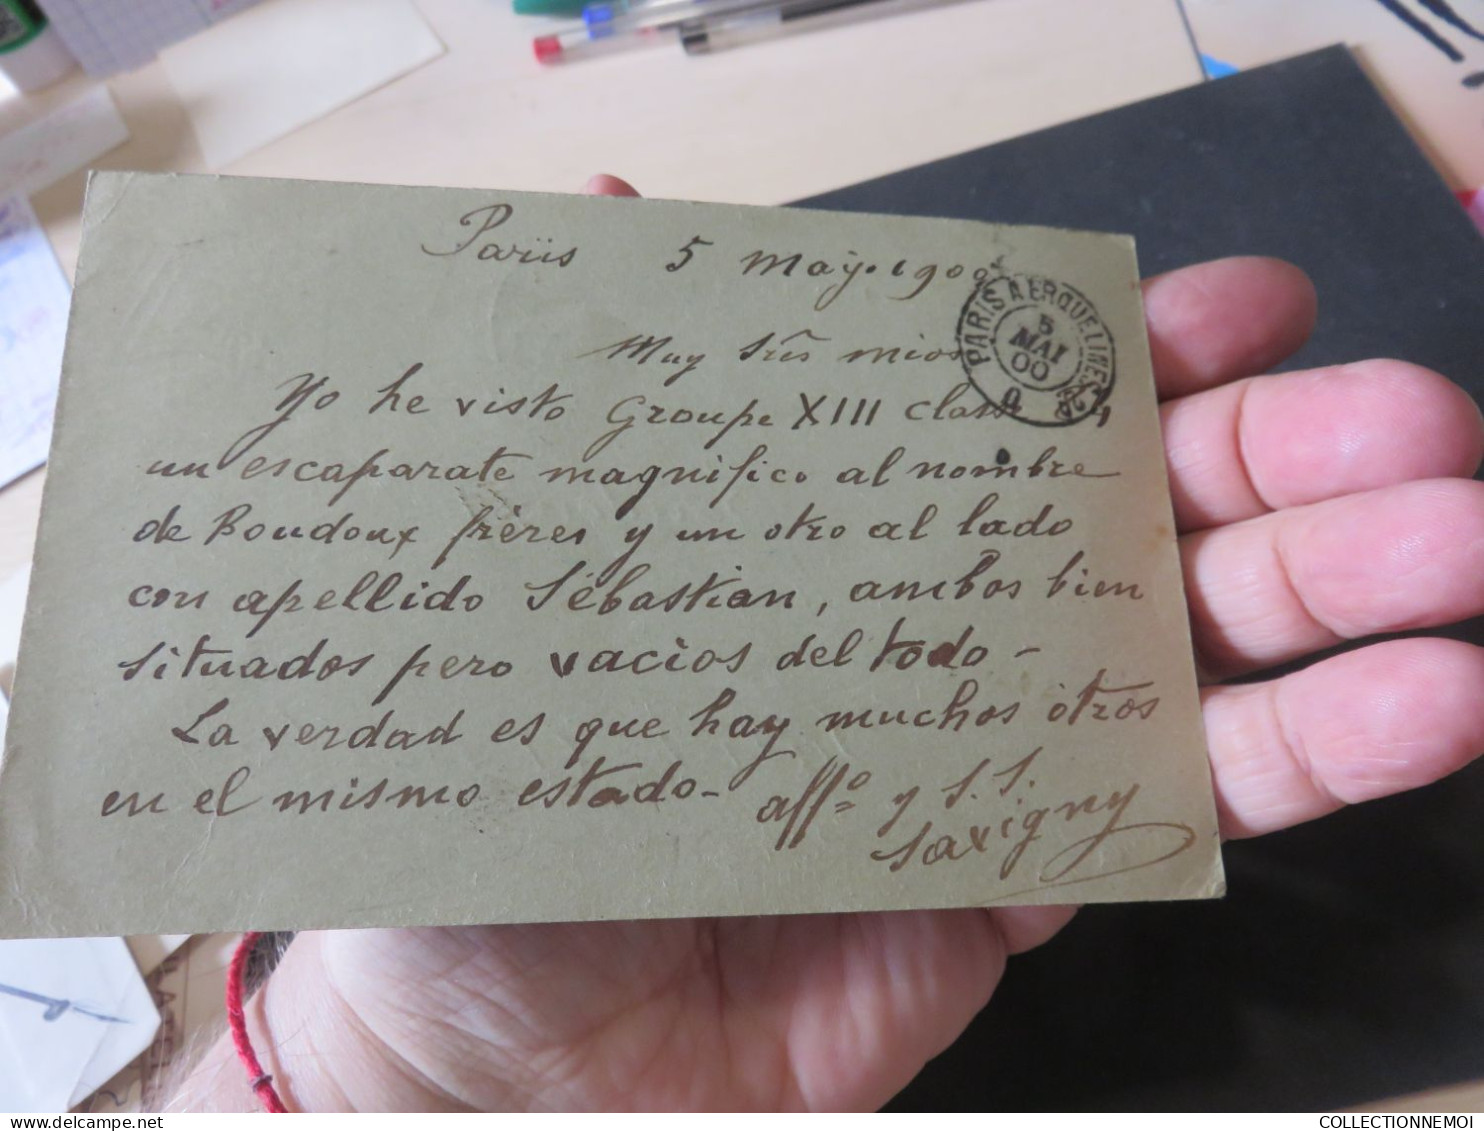 Pariis 5 May. 1900
PARIS A ERQUELINES
5
MAI
00
Muy Srẽs mios
Yo he visto Groupe XIII class
un escaparate magnifico al nombre
de Boudoux frères y un otro al lado
con apellido Sébastian, ambos bien
situados pero vacios del todo -
La verdad es que hay muchos otros
en el mismo estado -
affº y S.S.
Savigny
COLLECTIONNEMOI